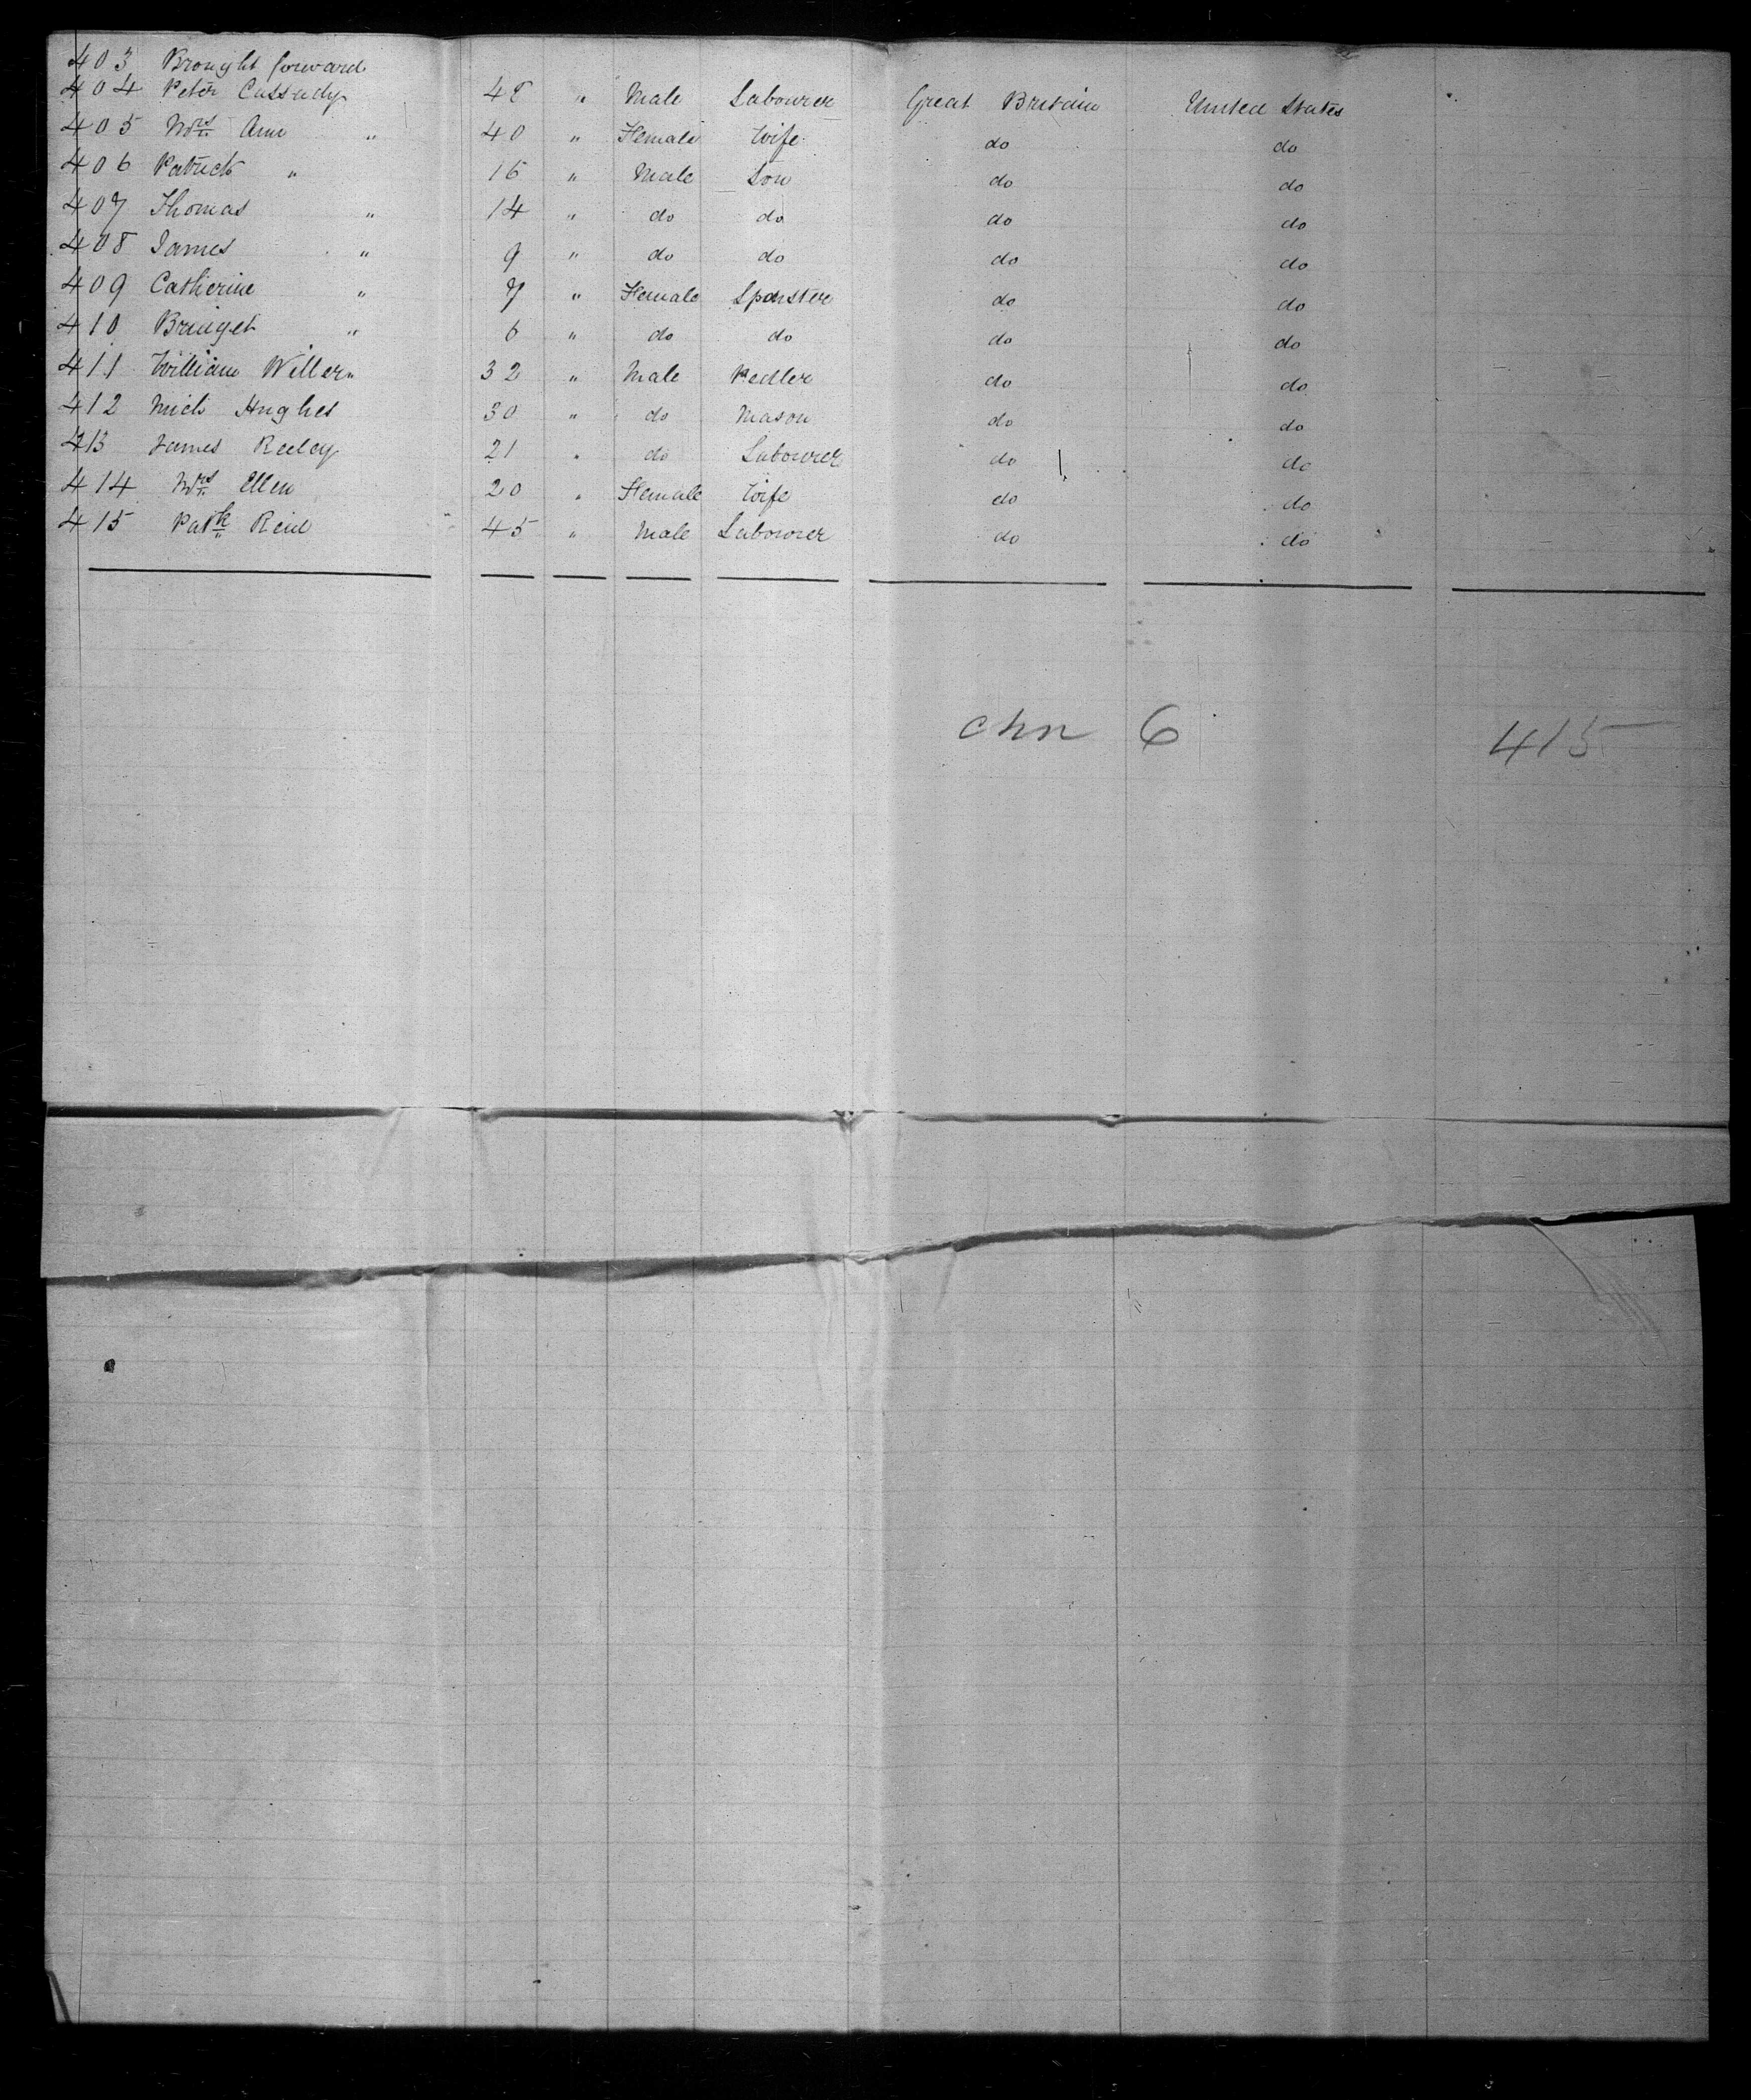 403 Brought forward
404 Peter Cassady 48 " Male Labourer Great Britain United States
405 Mrs Ann " 40 " Female Wife do do
406 Patrick " 16 " Male Son do do
407 Thomas " 14 " do do do do
408 James " 9 " do do do do
409 Catherine " 7 " Female Spinster do do
410 Bridget " 6 " do do do do
411 William Willer " 32 " Male Pedler do do
412 Mich Hughes 30 " do Mason do do
413 James Reeley 21 " do Labourer do do
414 Mrs Ellen 20 " Female Wife do do
415 Patk Reid 45 " Male Labourer do do
chn 6 415